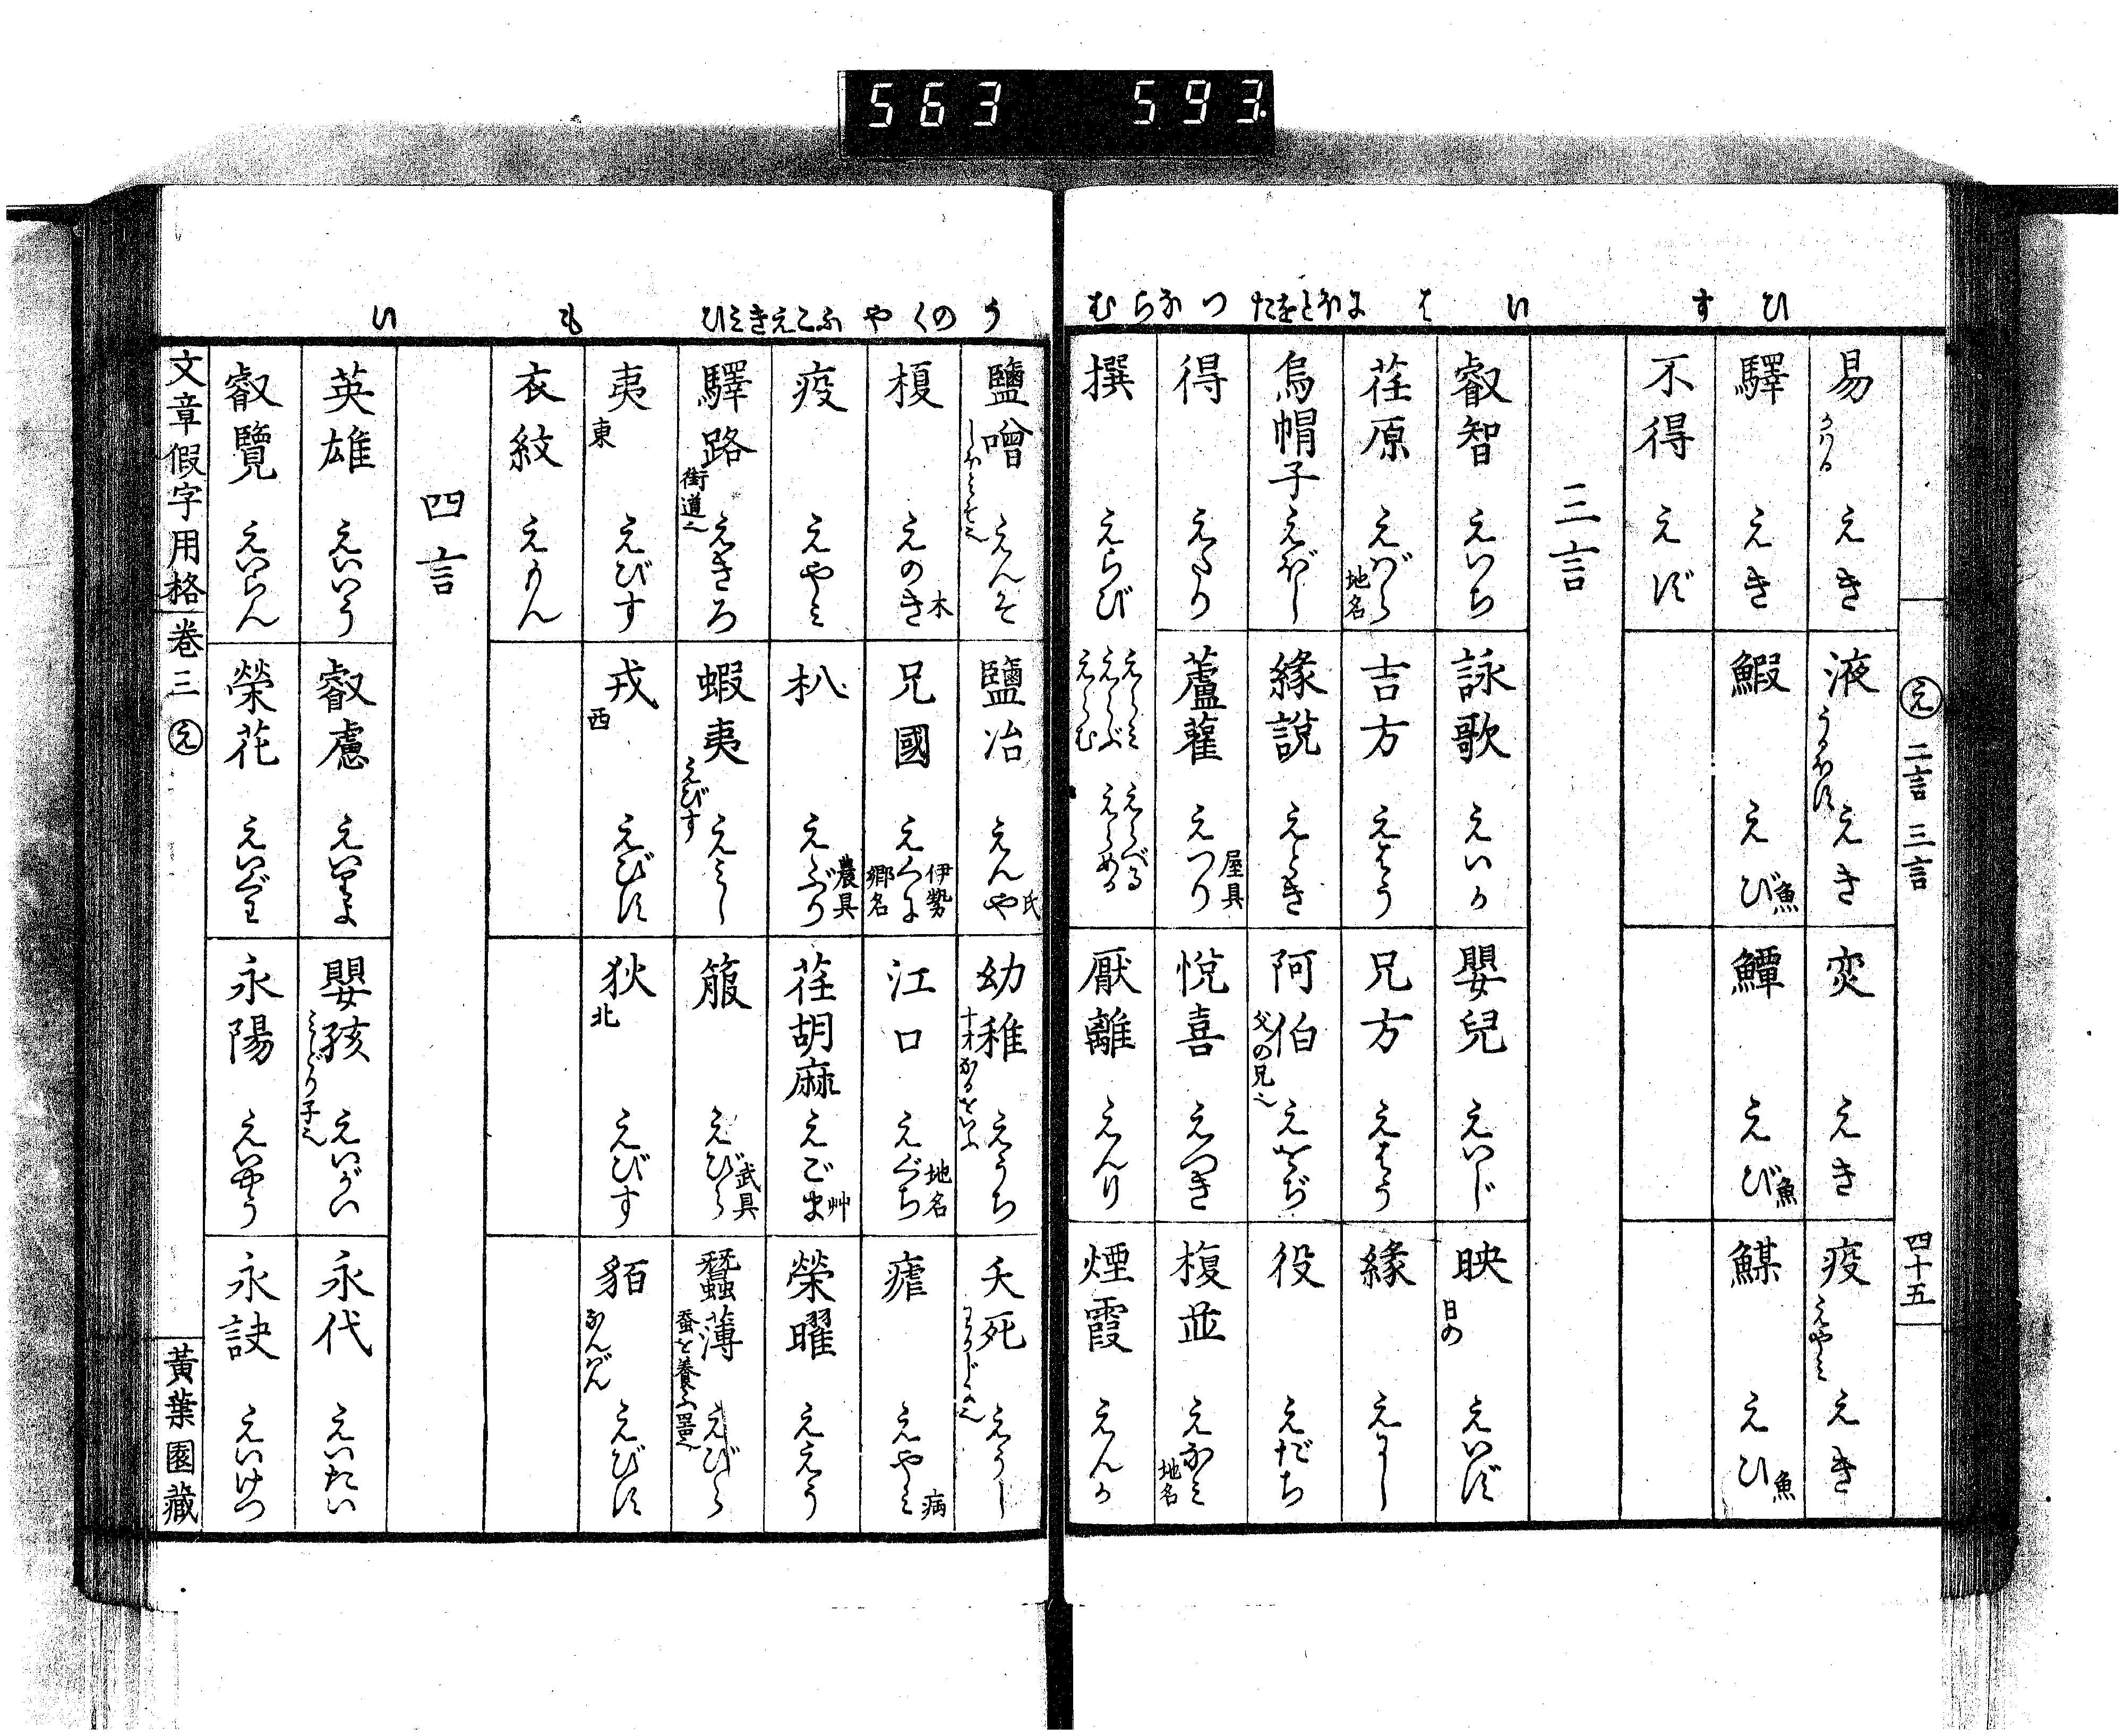 563 593
ひ す い は によほとをた つ なら む
え 二言 三言 四十五
易 かハる えき
液 うるほす えき
奕 えき
疫 えやミ えき
驛 えき
鰕 えび 魚
鱏 えび 魚
鯕 えひ 魚
不得 えず
三言
叡智 えいち
詠歌 えいか
嬰兒 えいじ
映 日の えいず
荏原 えばら 地名
吉方 えはう
兄方 えはう
緣 えにし
烏帽子 えぼし
緣說 えとき
阿伯 父の兄也 えをぢ
役 えだち
得 えたり
蘆雚 えつり 屋具
悅喜 えつき
榎並 えなミ 地名
撰 えらび
えらミ えらぶ えらむ えらべる えらめる
厭離 えんり
煙霞 えんか
う のく や ふこえきミひ も い
鹽噌 しほミそ也 えんそ
鹽冶 えんや 氏
幼稚 えうち
夭死 わかじに也 えうし
榎 えのき 木
兄國 えくに 伊勢 郷名
江口 えぐち 地名
瘧 えやミ 病
疫 えやミ
朳 えぶり 農具
荏胡麻 えごま 艸
榮曜 ええう
驛路 街道也 えきろ
蝦夷 えびす えミし
箙 えびら 武具
蠶薄 蚕を養ふ器也 えびら
夷 東 えびす
戎 西 えびす
狄 北 えびす
貊 なんばん えびす
衣紋 えもん
四言
英雄 えいいう
叡慮 えいりよ
嬰孩 ミどり子也 えいがい
永代 えいたい
叡覽 えいらん
榮花 えいぐわ
永陽 えいやう
永訣 えいけつ
文章假字用格 卷三 え 黃葉園藏